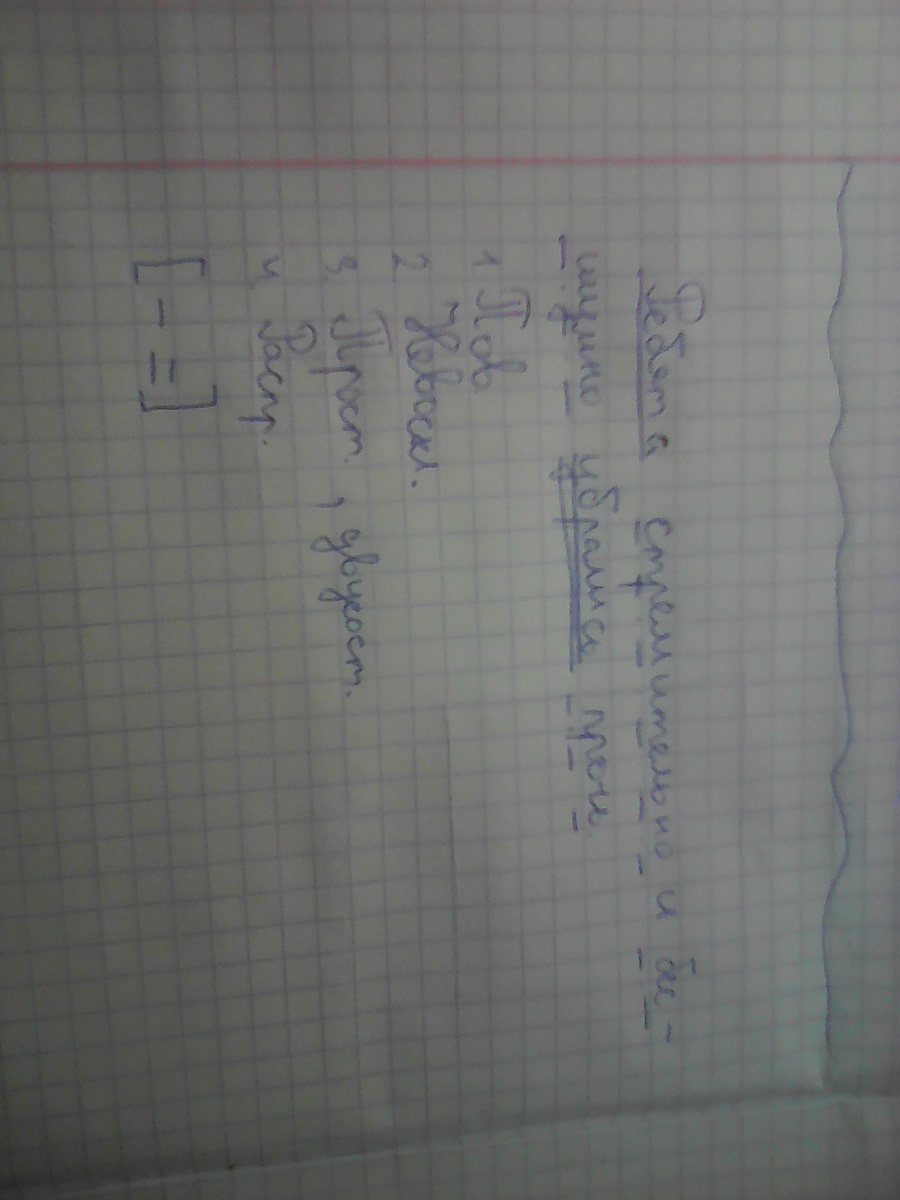 Ребята стремительно и бес-
шумно убрались прочь.
1. Пов.
2 Невоскл.
3. Прост. , двусост.
4. Распр.
[ - = ]